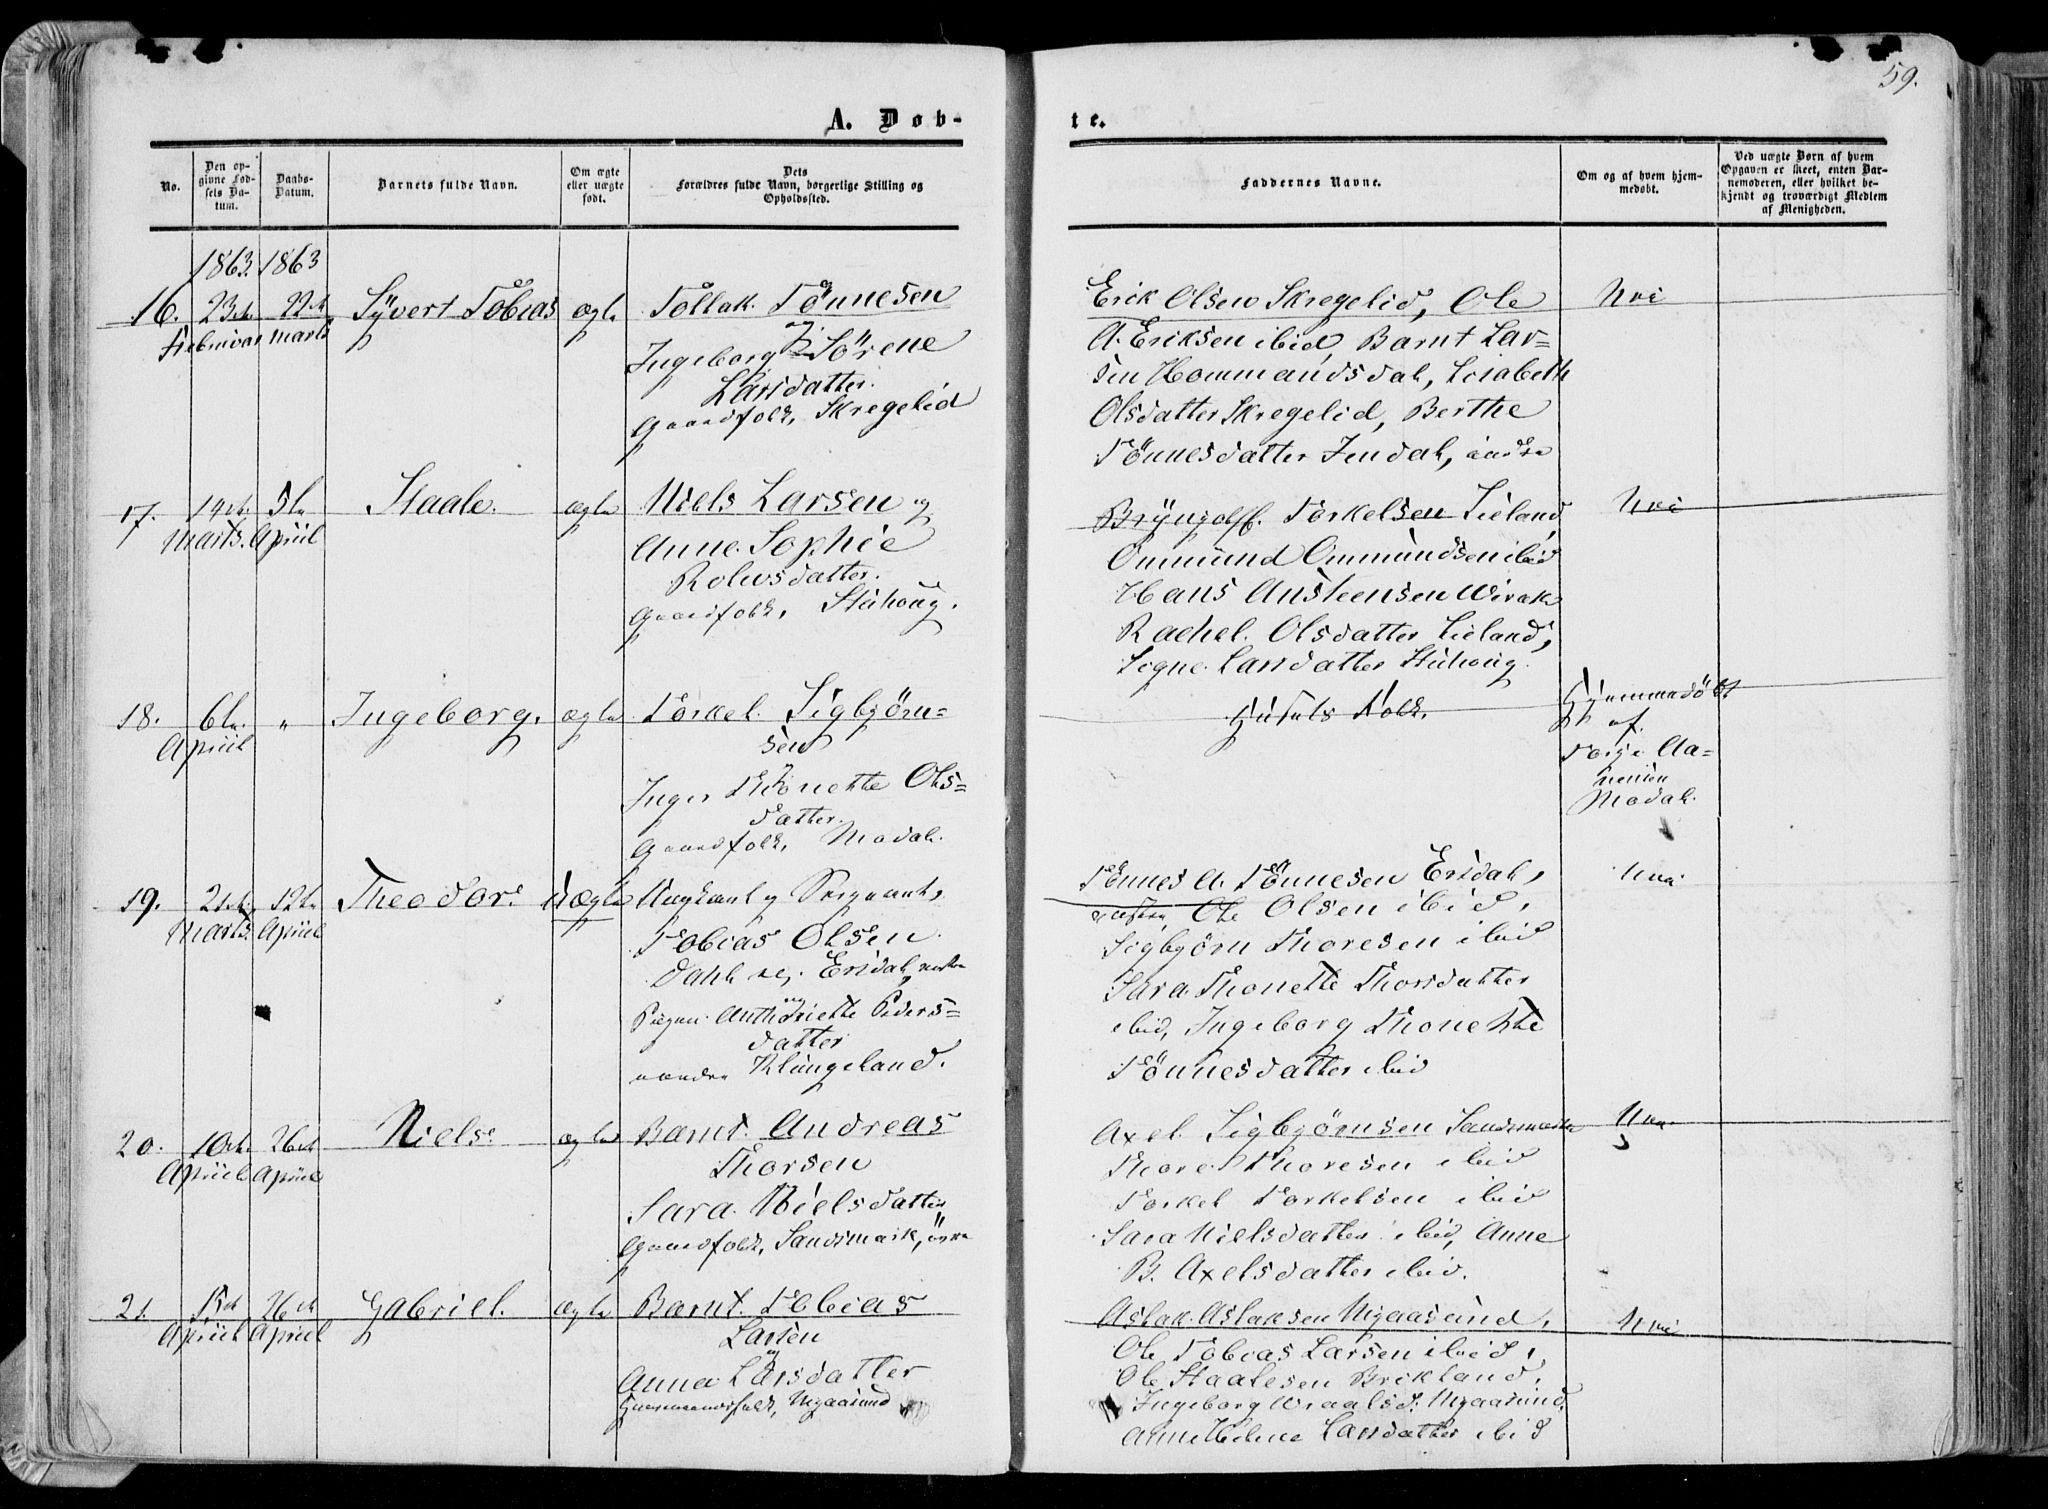 59.
A. Døb-
te.
No.
Den op-
givne Fød-
sels Da-
tum.
Daabs-
Datum.
Barnets fulde Navn.
Om ægte
eller uægte
født.
Dets
Forældres fulde Navn, borgerlige Stilling og
Opholdssted.
Faddernes Navne.
Om og af hvem hjem-
medøbt.
Ved uægte Børn af hvem
Opgaven er skeet, enten Bar-
nemoderen, eller hvilket be-
kjendt og troværdigt Medlem
af Menigheden.
1863. 1863
16. 23de 22de Syvert Tobias ægte
Februar Marts
Tollak Tönnesen
og
Ingeborg Sörene
Larsdatter.
Gaardfolk, Skregelid
Erik Olsen Skregelid, Ole
A. Eriksen ibid, Bernt Lar=
sen Hommandsdal, Lisabeth
Olsdatter Skregelid, Berthe
Tönnesdatter
Nei
17. 14de 5te Staale. ægte
Marts. April
Niels Larsen og
Anne Sophie
Rolvsdatter.
Gaardfolk, Stuhoug.
Bryngolf Torkelsen Lieland,
Ommund Ommundsen ibid
Hans Austeensen Wirak
Rachel Olsdatter Lieland,
Signe Larsdatter Stuhoug.
Nei
18. 6te " Ingeborg. ægte
April
Torkel Sigbjörn=
sen
Inger Thonette Ols=
datter.
Gaardfolk, Modal.
Husets Folk.
Hjemmedöbt
af
Terje Aa=
nensen
Modal.
19. 21de 12te Theodor. Uægte
Marts. April
Ungkarl og Sergeant,
Tobias Olsen
Dahl Ersdal,
Pigen Anthoriette Peders=
datter
Klungeland.
Tönnes A. Tönnesen Ersdal,
Ole Olsen ibid,
Sigbjörn Thoresen ibid
Sara Thonette Thorsdatter
ibid, Ingeborg Thonette
Tönnesdatter ibid
Nei
20. 10de 26de Niels. ægte
April April
Bernt Andreas
Thorsen
Sara Nielsdatter
Gaardfolk, Sandsmark,
Axel Sigbjörnsen Sandsmark
Thore Thoresen ibid
Torkel Torkelsen ibid
Sara Nielsdatter ibid, Anne
B. Axelsdatter ibid.
Nei
21. 15de 26de Gabriel. ægte
April April
Bernt Tobias
Larsen
og
Anna Larsdatter
Huusmandsfolk, Mgaasund
Aslak Aslaksen Mgaasund,
Ole Tobias Larsen ibid,
Ole Staalesen Birkland,
Ingeborg Mgaasund,
Anne Helene Larsdatter ibid
Nei